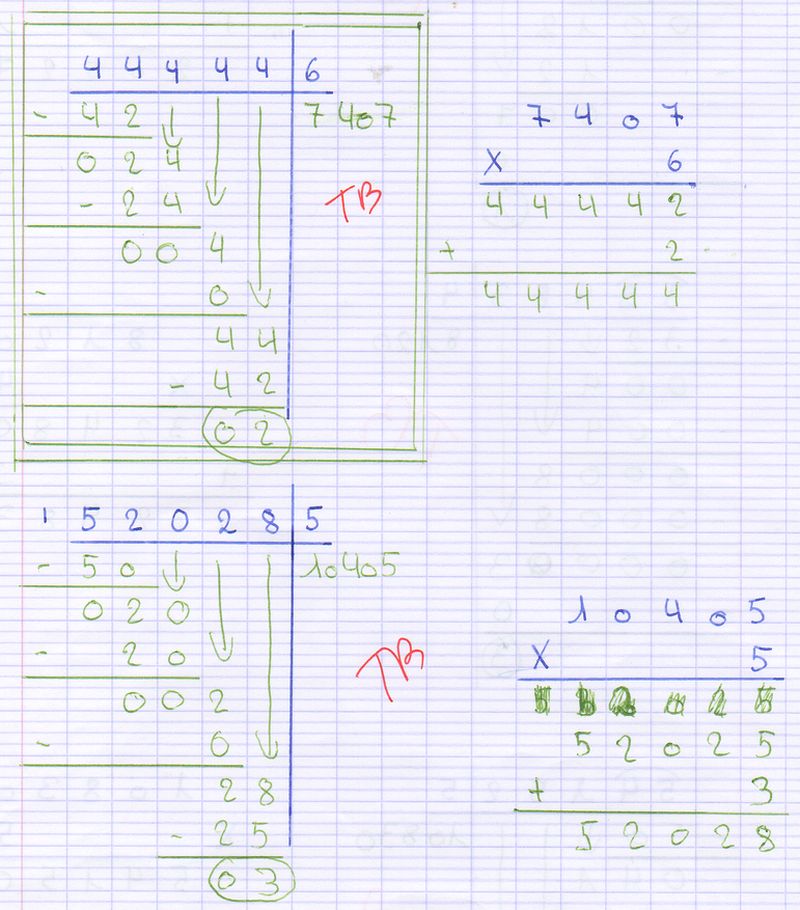 4 4 4 4 4 6
- 4 2 7407
0 2 4
- 2 4
TB
0 0 4
- 0
4 4
- 4 2
0 2
7 4 0 7
X 6
4 4 4 4 2
+ 2
4 4 4 4 4
5 2 0 2 8 5
- 5 0 10405
0 2 0
- 2 0
TB
0 0 2
- 0
2 8
- 2 5
0 3
1 0 4 0 5
X 5
5 2 0 2 5
+ 3
5 2 0 2 8